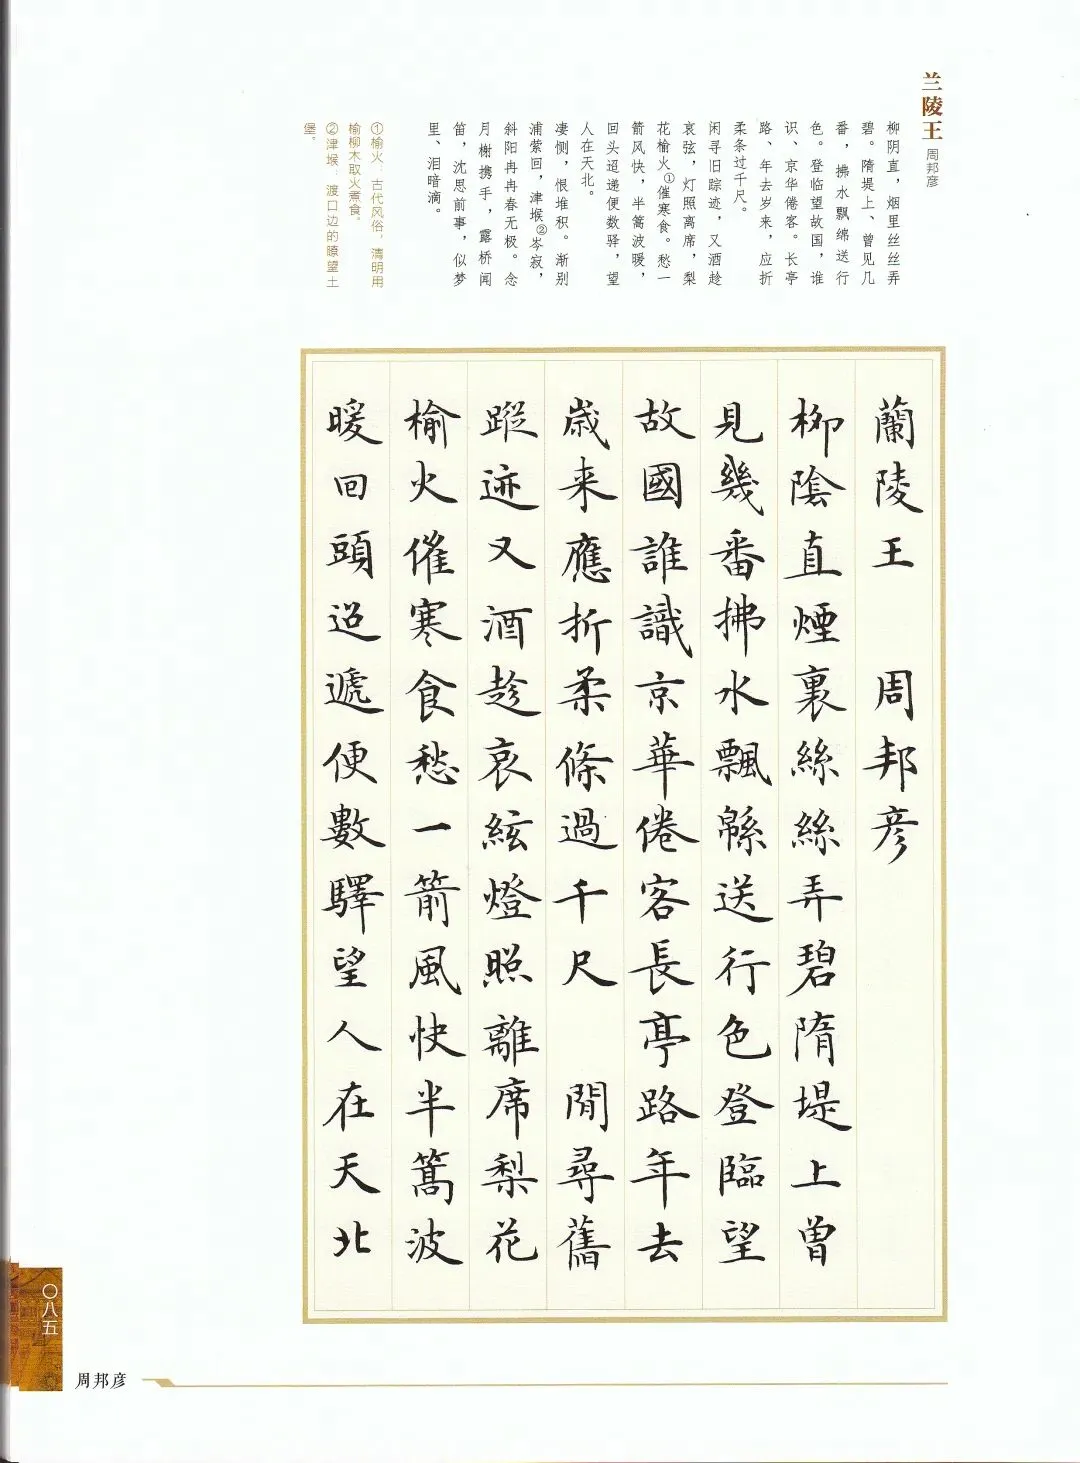 兰陵王
周邦彦
柳阴直，烟里丝丝弄
碧。隋堤上、曾见几
番，拂水飘绵送行
色。登临望故国，谁
识、京华倦客。长亭
路、年去岁来，应折
柔条过千尺。
闲寻旧踪迹，又酒趁
哀弦，灯照离席，梨
花榆火①催寒食。愁一
箭风快，半篙波暖，
回头迢递便数驿，望
人在天北。
凄恻，恨堆积。渐别
浦萦回，津堠②岑寂，
斜阳冉冉春无极。念
月榭携手，露桥闻
笛，沈思前事，似梦
里、泪暗滴。
①榆火：古代风俗，清明用
榆柳木取火煮食。
②津堠：渡口边的瞭望土
堡。
蘭陵王 周邦彦
柳陰直煙裏絲絲弄碧隋堤上曾
見幾番拂水飄緜送行色登臨望
故國誰識京華倦客長亭路年去
歲来應折柔條過千尺 閒尋舊
蹤迹又酒趁哀絃燈照離席梨花
榆火催寒食愁一箭風快半篙波
暖回頭迢遞便數驛望人在天北
〇八五
周邦彦